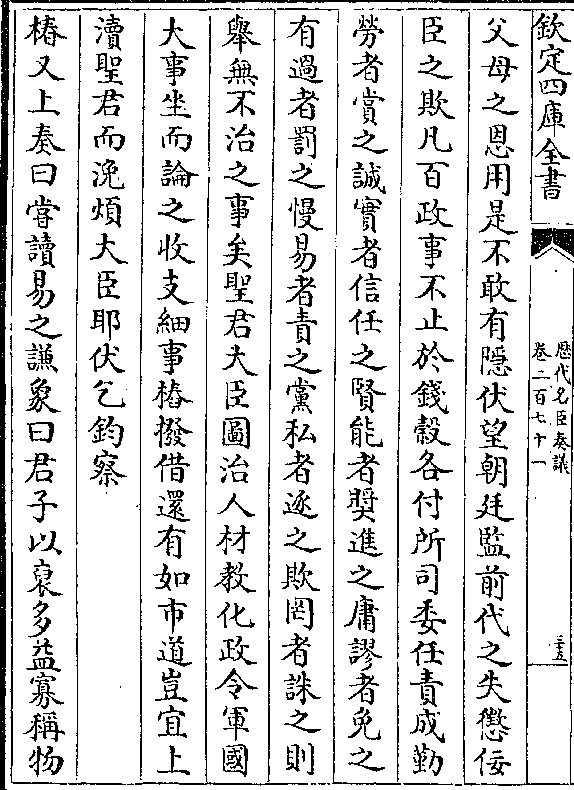 欽定四庫全書
歴代名臣奏議
卷二百七十一
三五
父母之恩用是不敢有隱伏望朝廷監前代之失懲佞
臣之欺凡百政事不止於錢穀各付所司委任責成勤
勞者賞之誠實者信任之賢能者奬進之庸謬者免之
有過者罰之慢易者責之黨私者逐之欺罔者誅之則
舉無不治之事矣聖君大臣圖治人材教化政令軍國
大事坐而論之收支細事樁撥借還有如市道豈宜上
瀆聖君而浼煩大臣耶伏乞鈞察
椿又上奏曰嘗讀易之謙象曰君子以裒多益寡稱物